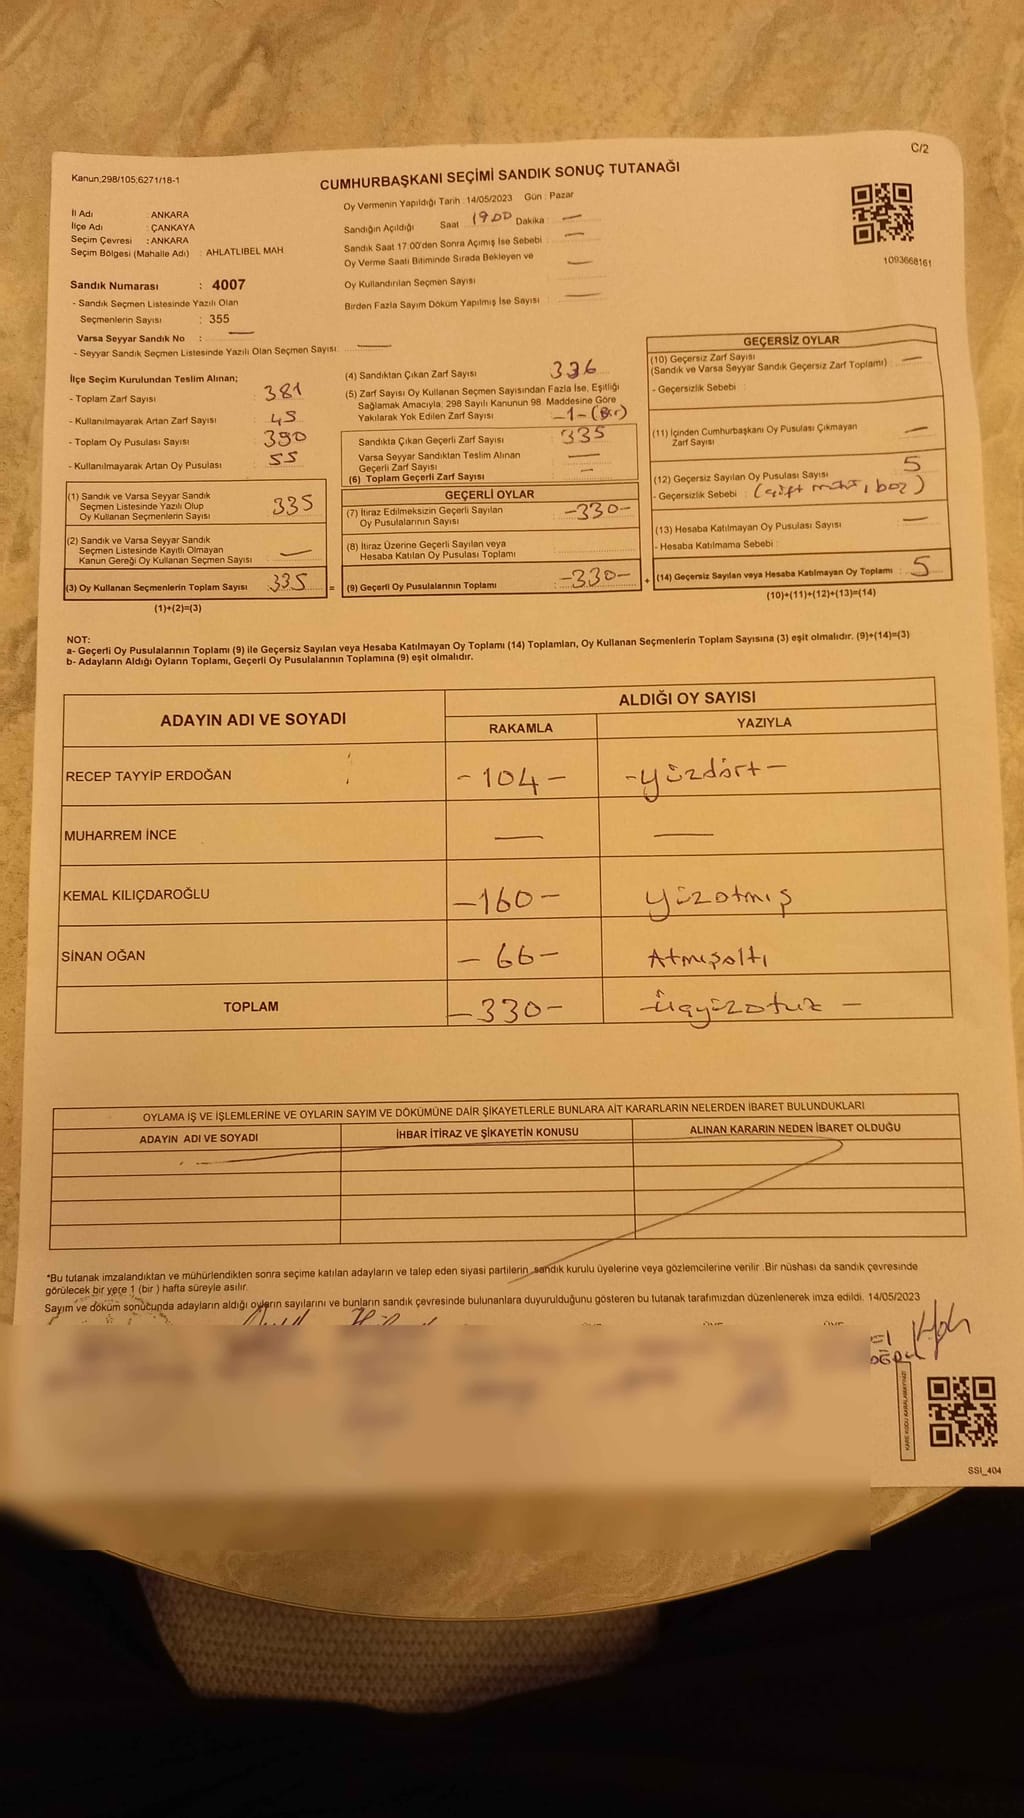 C/2
Kanun;298/105;6271/18-1
CUMHURBAŞKANI SEÇİMİ SANDIK SONUÇ TUTANAĞI
İl Adı : ANKARA
İlçe Adı : ÇANKAYA
Seçim Çevresi : ANKARA
Seçim Bölgesi (Mahalle Adı) : AHLATLIBEL MAH
Oy Vermenin Yapıldığı Tarih : 14/05/2023 Gün : Pazar
Sandığın Açıldığı Saat 1900 Dakika : —
Sandık Saat 17:00'den Sonra Açımış İse Sebebi : —
Oy Verme Saati Bitiminde Sırada Bekleyen ve
Oy Kullandırılan Seçmen Sayısı —
Birden Fazla Sayım Döküm Yapılmış İse Sayısı : —
1093668161
Sandık Numarası : 4007
- Sandık Seçmen Listesinde Yazılı Olan
Seçmenlerin Sayısı : 355
Varsa Seyyar Sandık No : —
- Seyyar Sandık Seçmen Listesinde Yazılı Olan Seçmen Sayısı: —
İlçe Seçim Kurulundan Teslim Alınan;
- Toplam Zarf Sayısı : 381
- Kullanılmayarak Artan Zarf Sayısı : 45
- Toplam Oy Pusulası Sayısı : 390
- Kullanılmayarak Artan Oy Pusulası : 55
(1) Sandık ve Varsa Seyyar Sandık
Seçmen Listesinde Yazılı Olup
Oy Kullanan Seçmenlerin Sayısı : 335
(2) Sandık ve Varsa Seyyar Sandık
Seçmen Listesinde Kayıtlı Olmayan
Kanun Gereği Oy Kullanan Seçmen Sayısı : —
(3) Oy Kullanan Seçmenlerin Toplam Sayısı : 335 =
(1)+(2)=(3)
(4) Sandıktan Çıkan Zarf Sayısı : 336
(5) Zarf Sayısı Oy Kullanan Seçmen Sayısından Fazla İse, Eşitliği
Sağlamak Amacıyla, 298 Sayılı Kanunun 98. Maddesine Göre
Yakılarak Yok Edilen Zarf Sayısı : -1-(Bir)
Sandıkta Çıkan Geçerli Zarf Sayısı : 335
Varsa Seyyar Sandıktan Teslim Alınan
Geçerli Zarf Sayısı : —
(6) Toplam Geçerli Zarf Sayısı : —
GEÇERLİ OYLAR
(7) İtiraz Edilmeksizin Geçerli Sayılan
Oy Pusulalarının Sayısı : -330-
(8) İtiraz Üzerine Geçerli Sayılan veya
Hesaba Katılan Oy Pusulası Toplamı :
(9) Geçerli Oy Pusulalarının Toplamı : -330- +
GEÇERSİZ OYLAR
(10) Geçersiz Zarf Sayısı
(Sandık ve Varsa Seyyar Sandık Geçersiz Zarf Toplamı) : —
- Geçersizlik Sebebi :
(11) İçinden Cumhurbaşkanı Oy Pusulası Çıkmayan
Zarf Sayısı : —
(12) Geçersiz Sayılan Oy Pusulası Sayısı : 5
- Geçersizlik Sebebi : (çift mühür, boş)
(13) Hesaba Katılmayan Oy Pusulası Sayısı : —
- Hesaba Katılmama Sebebi :
(14) Geçersiz Sayılan veya Hesaba Katılmayan Oy Toplamı : 5
(10)+(11)+(12)+(13)=(14)
NOT:
a- Geçerli Oy Pusulalarının Toplamı (9) ile Geçersiz Sayılan veya Hesaba Katılmayan Oy Toplamı (14) Toplamları, Oy Kullanan Seçmenlerin Toplam Sayısına (3) eşit olmalıdır. (9)+(14)=(3)
b- Adayların Aldığı Oyların Toplamı, Geçerli Oy Pusulalarının Toplamına (9) eşit olmalıdır.
ADAYIN ADI VE SOYADI
ALDIĞI OY SAYISI
RAKAMLA YAZIYLA
RECEP TAYYİP ERDOĞAN -104- -yüzdört-
MUHARREM İNCE — —
KEMAL KILIÇDAROĞLU -160- yüzatmış
SİNAN OĞAN -66- Atmışaltı
TOPLAM -330- -üçyüzotuz-
OYLAMA İŞ VE İŞLEMLERİNE VE OYLARIN SAYIM VE DÖKÜMÜNE DAİR ŞİKAYETLERLE BUNLARA AİT KARARLARIN NELERDEN İBARET BULUNDUKLARI
ADAYIN ADI VE SOYADI İHBAR İTİRAZ VE ŞİKAYETİN KONUSU ALINAN KARARIN NEDEN İBARET OLDUĞU
*Bu tutanak imzalandıktan ve mühürlendikten sonra seçime katılan adayların ve talep eden siyasi partilerin sandık kurulu üyelerine veya gözlemcilerine verilir. Bir nüshası da sandık çevresinde
görülecek bir yere 1 (bir) hafta süreyle asılır.
Sayım ve döküm sonucunda adayların aldığı oyların sayılarını ve bunların sandık çevresinde bulunanlara duyurulduğunu gösteren bu tutanak tarafımızdan düzenlenerek imza edildi. 14/05/2023
KARE KODU KARALAMAYINIZ!
SSI_404